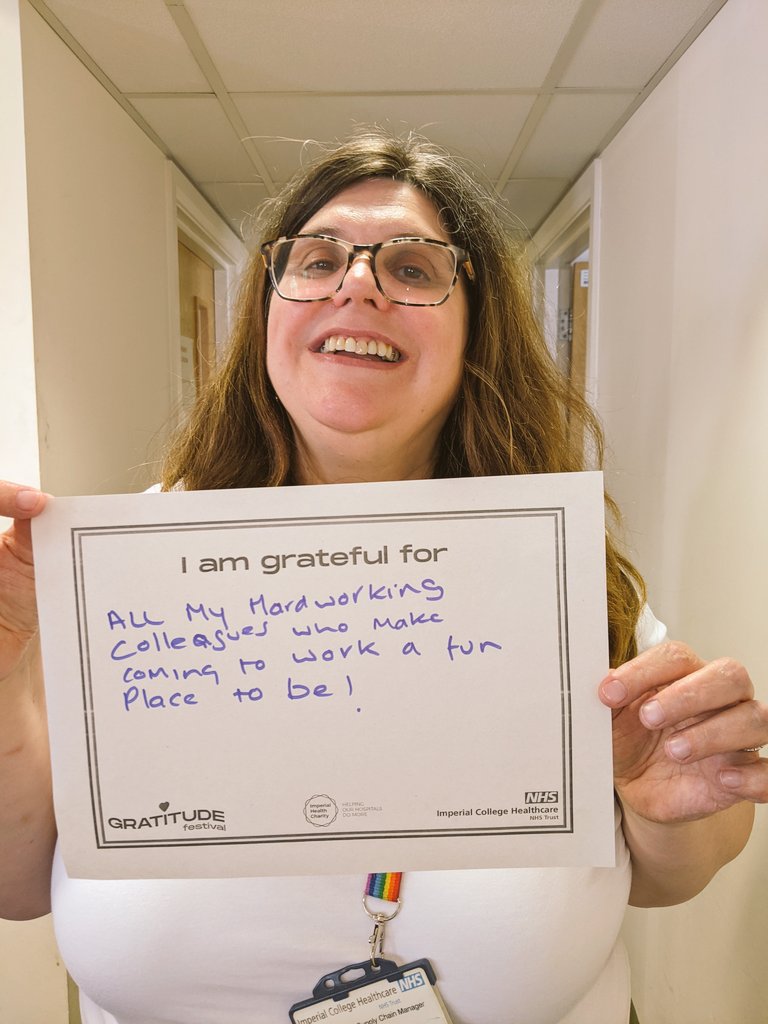 I am grateful for
ALL My Hardworking
Colleagues who make
coming to work a fun
Place to be!
GRATITUDE
festival
Imperial
Health
Charity
HELPING
OUR HOSPITALS
DO MORE
NHS
Imperial College Healthcare
NHS Trust
Imperial College Healthcare NHS
NHS Trust
Supply Chain Manager